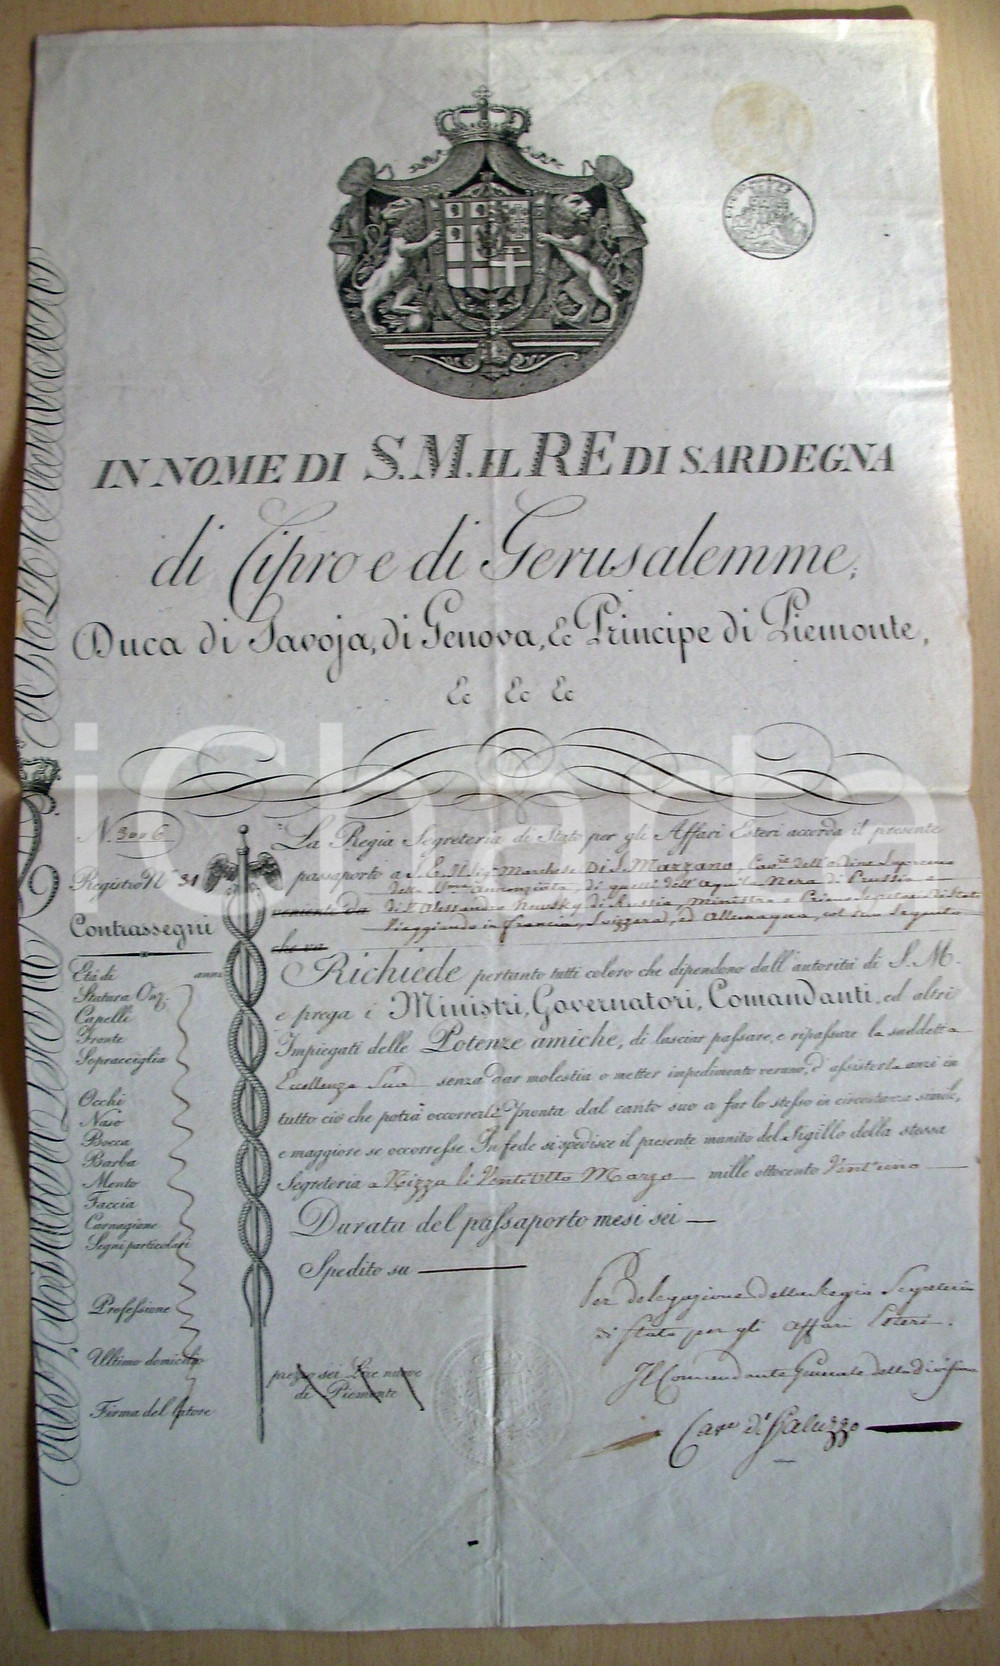 IN NOME DI S.M. IL RE DI SARDEGNA
di Cipro e di Gerusalemme,
Duca di Savoja, di Genova, &c Principe di Piemonte,
&c &c &c
iCharta
N. 3006
Registro N° 31
Contrassegni
Età di anni
Statura Onz.
Capelli
Fronte
Sopracciglia
Occhi
Naso
Bocca
Barba
Mento
Faccia
Carnagione
Segni particolari
Professione
Ultimo domicilio
Firma del latore
La Regia Segreteria di Stato per gli Affari Esteri accorda il presente
passaporto a S. E. Il Sig.r Marchese Di S. Marzano, Cav.re dell'ordine Supremo
della SS.ma Annonziata, di quelli dell'Aquila Nera di Prussia e
veniente da di S.t Alessandro Newsky di Russia, Ministro e Primo Segretario di Stato
Viaggiando in francia, Svizzera, ed Allemagna, col suo Seguito
che va
Richiede pertanto tutti coloro che dipendono dall'autorità di S. M.
e prega i Ministri, Governatori, Comandanti, ed altri
Impiegati delle Potenze amiche, di lasciar passare, e ripassare la suddetta
Eccellenza Sua senza dar molestia o metter impedimento veruno, d'assisterla anzi in
tutto ciò che potrà occorrerle pronta dal canto suo a far lo stesso in circostanza simile,
e maggiore se occorresse. In fede si spedisce il presente munito del Sigillo della stessa
Segreteria a Nizza li Ventiotto Marzo mille ottocento Vent'uno
Durata del passaporto mesi sei
Spedito su
prezzo sei Lire nuove
di Piemonte
Per delegazione della Regia Segreteria
di Stato per gli affari Esteri.
Il Commandante Generale della Divisione
Cav.re di Saluzzo